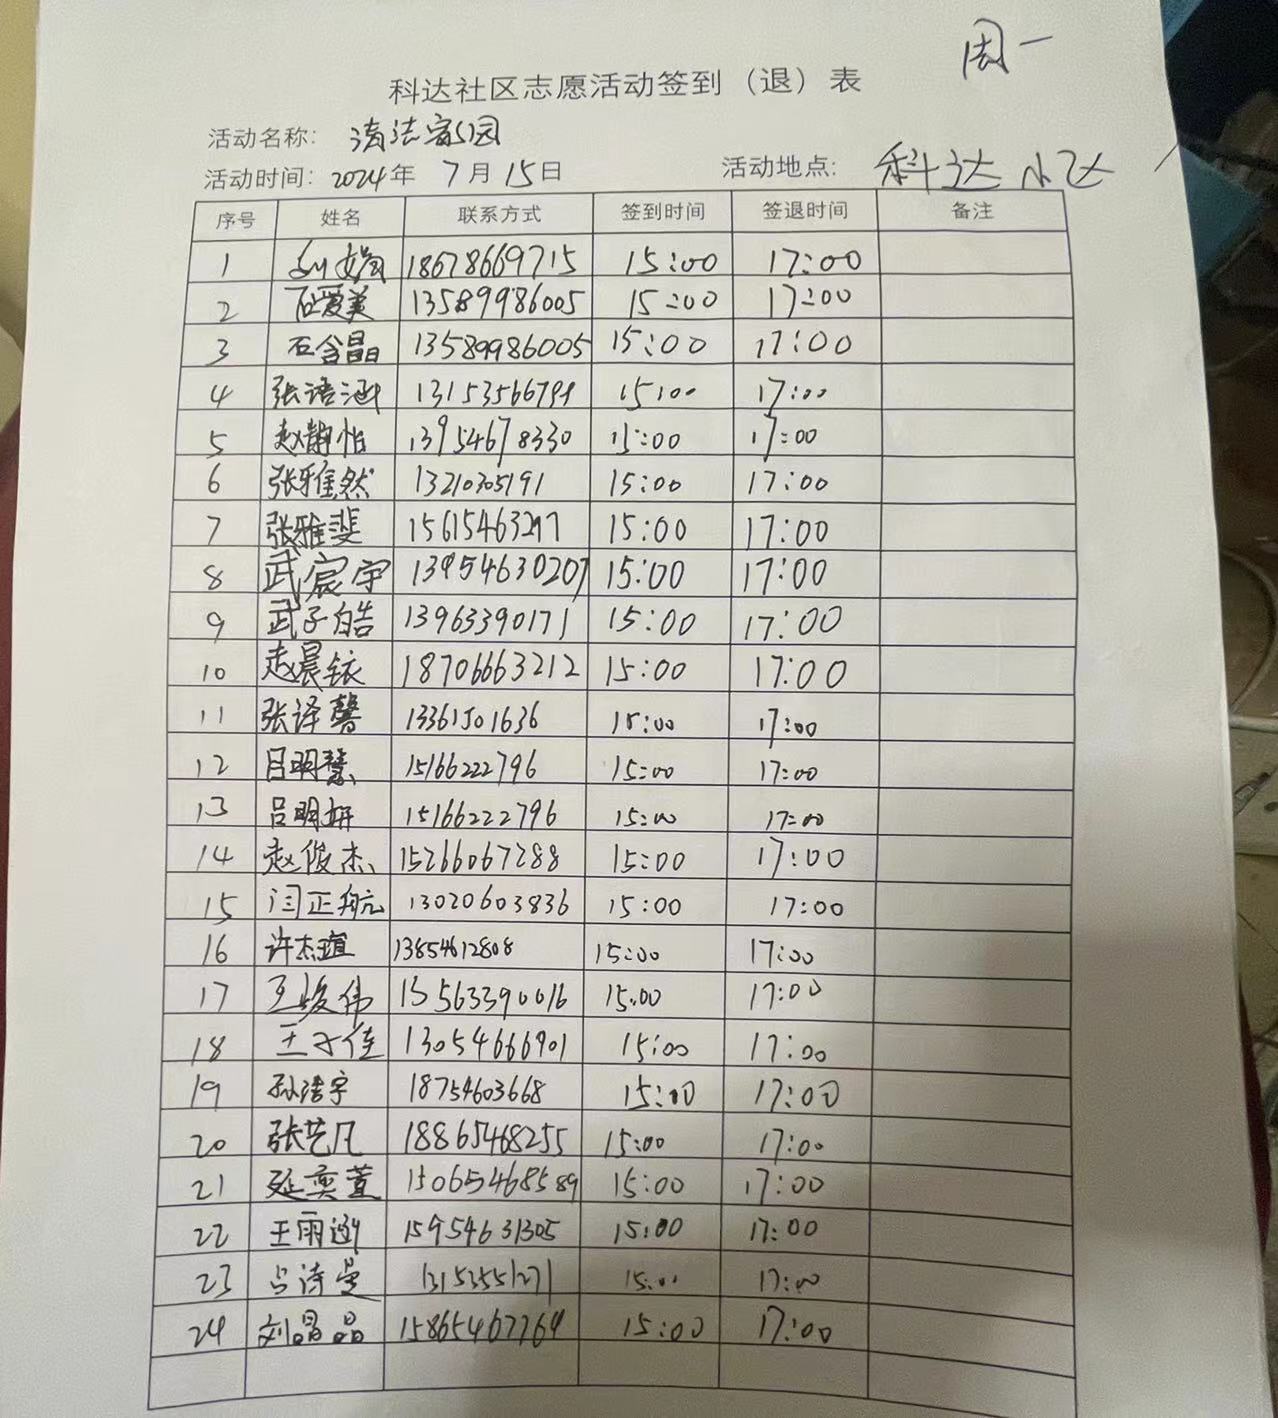 周一
科达社区志愿活动签到（退）表
活动名称：清洁家园
活动时间：2024年 7月15日 活动地点：科达小区
序号 姓名 联系方式 签到时间 签退时间 备注
1 刘娟 18678669715 15:00 17:00
2 石爱美 13589986005 15:00 17:00
3 石含晶 13589986005 15:00 17:00
4 张语涵 15:00 17:00
5 赵静怡 13954678330 15:00 17:00
6 张雅然 15:00 17:00
7 张雅斐 15615463297 15:00 17:00
8 武宸宇 13954630207 15:00 17:00
9 武子皓 13963390171 15:00 17:00
10 赵晨铱 18706663212 15:00 17:00
11 张译馨 13361501636 15:00 17:00
12 吕明慧 15166222796 15:00 17:00
13 吕明妍 15166222796 15:00 17:00
14 赵俊杰 15266067288 15:00 17:00
15 闫正航 13020603836 15:00 17:00
16 许杰瑄 13854612808 15:00 17:00
17 王俊伟 15563390016 15:00 17:00
18 王子佳 13054666901 15:00 17:00
19 孙浩宇 18754603668 15:00 17:00
20 张艺凡 18865468255 15:00 17:00
21 延奕萱 15065468589 15:00 17:00
22 王雨 15954631305 15:00 17:00
23 吕诗曼 15:00 17:00
24 刘晶晶 15:00 17:00